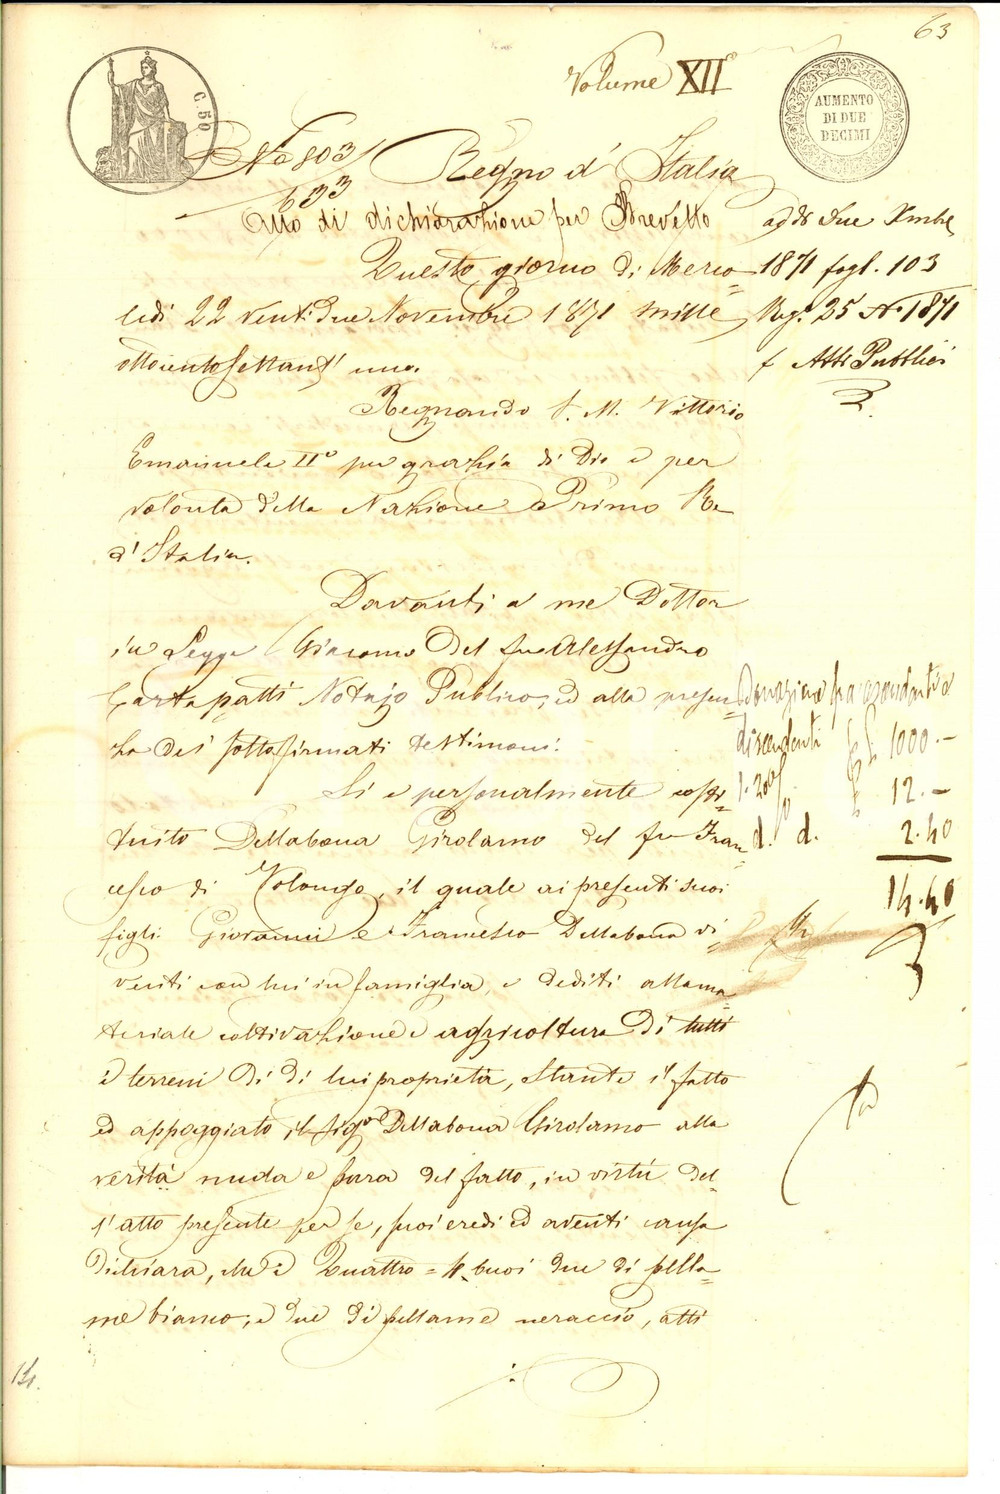 63
Volume XII°
C. 50
AUMENTO
DI DUE
DECIMI
No 803
633
Regno d' Italia
Atto di dichiarazione per Brevetto
Questo giorno di Merco=
ledi 22 venti due Novembre 1871 mille
ottocento settant' uno.
Regnando S. M. Vittorio
Emanuele II° per grazia di Dio e per
volontà della Nazione Primo Re
d' Italia.
Davanti a me Dottor
in Legge Giacomo del fu Alessandro
Cartapatti Notajo Publico, ed alla presen=
za dei sottofirmati testimoni.
Si è personalmente costi=
tuito Dellabona Girolamo del fu Fran=
cesco di Volongo, il quale ai presenti suoi
figli Giovanni e Francesco Dellabona vi=
venti con lui in famiglia, e dediti alla ma=
teriale coltivazione e agricoltura di tutti
i terreni di di lui proprietà, stante il fatto
ed appoggiato il Sigr Dellabona Girolamo alla
verità nuda e pura del fatto, in virtù del=
l' atto presente per se, suoi eredi ed aventi causa
dichiara, che i Quattro = 4 buoi due di pella=
me bianco, e due di pellame neraccio, atti
addi due Xmbre
1871 fogl. 103
Reg. 25 N° 1871
f Atti Pubblici
Donazione fra ascendenti e
discendenti 1000.-
1.20% 12.-
d. d. 2.40
14.40